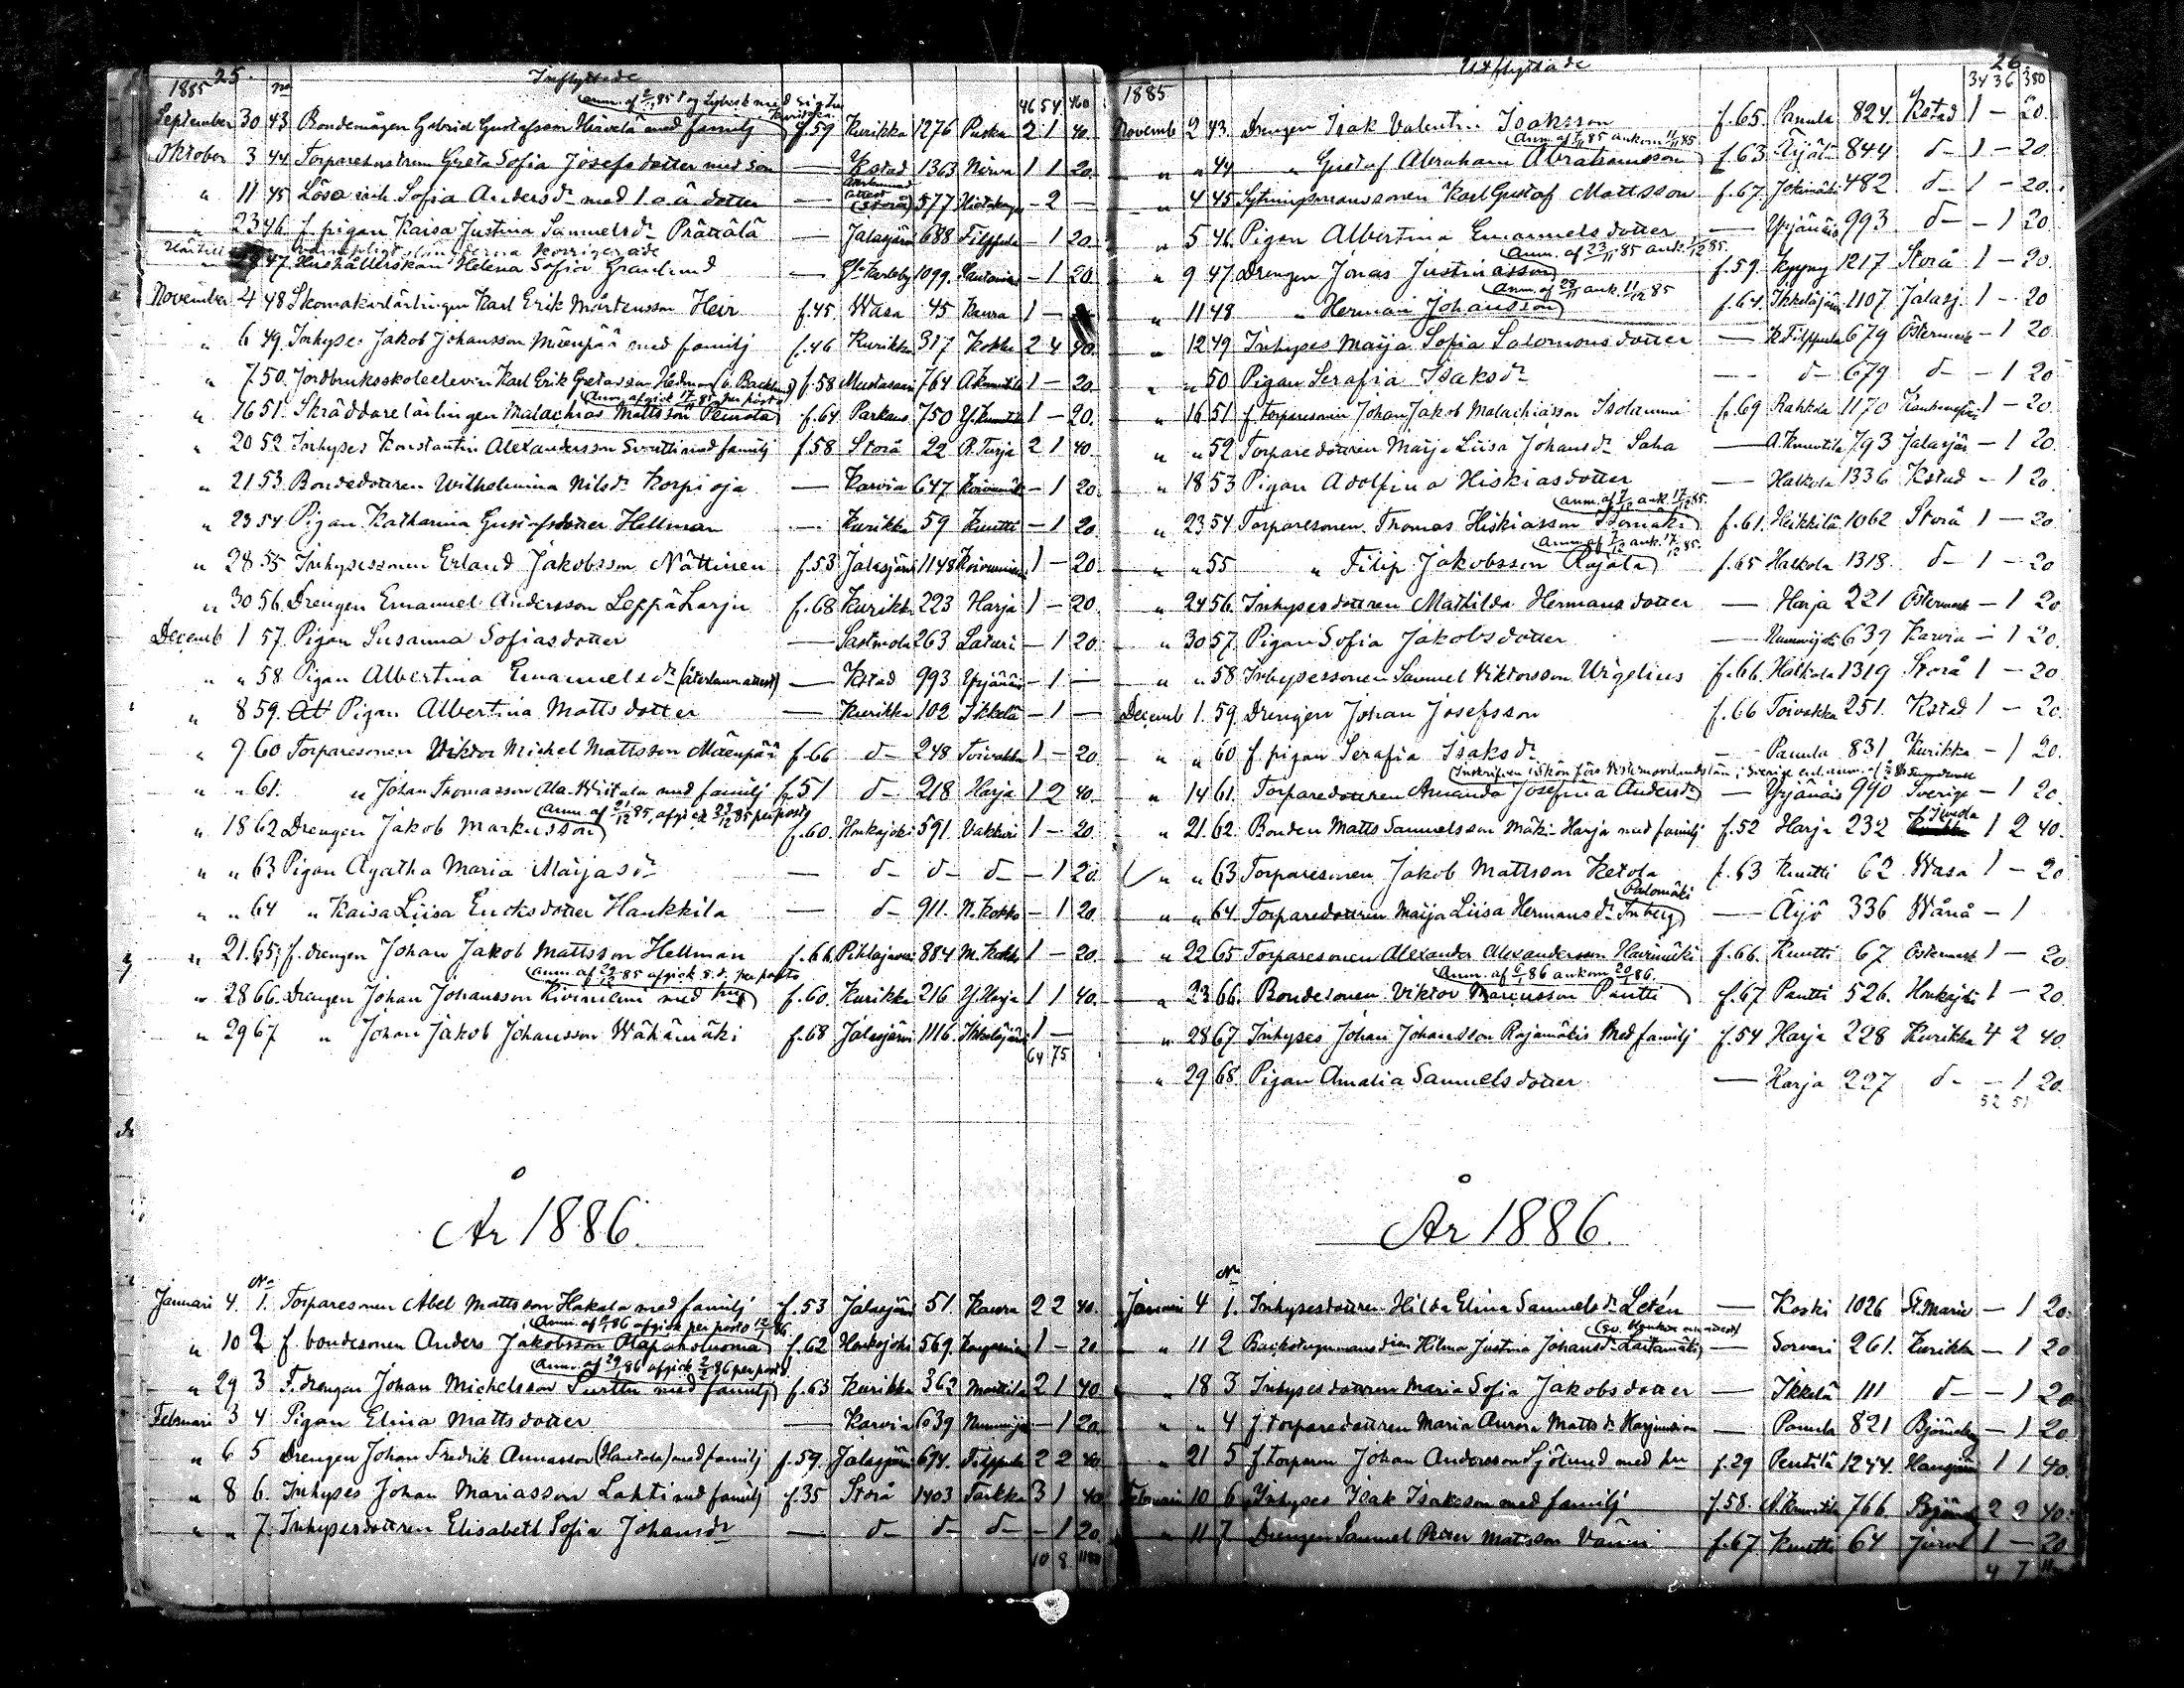 25.
Inflyttade
1885
No
46 54 460
September 30 43. Bondemågen Gabriel Gustafsson Hirvelä med familj f.59 Kurikka 1276 Puska 2 1 40.
Oktober 3 44. Torparehustrun Greta Sofia Josefsdotter med son — Kstad 1363 Nirva 1 1 20.
" 11 45 Lösa Sofia Andersdr med 1 o ä dotter — (Storå) 577 - 2 —
" 23 46. f. pigan Kaisa Justina Samuelsdr Prättälä — Jalasjärvi 688 Filppula - 1 20.
47. Hushållerskan Helena Sofia Granlund — Gl. Karleby 1099. - 1 20
November 4 48 Skomakarlärlingen Karl Erik Mårtensson Heir f.45. Wasa 45 Kaura 1 —
" 6 49. Inhyses Jakob Johansson Mäenpää med familj f.46 Kurikka 317 Kokko 2 4 40.
" 7 50. Jordbruksskoleeleven Karl Erik Gretasson Hedman (v. Backlund) f.58 Mustasaari 764 A.Knuutila 1 — 20.
Anm. afgick 17/11 85 per post
" 16 51. Skräddarelärlingen Malachias Mattsson Peurala f.64 Parkano 750 Y.Knuutila 1 — 20.
" 20 52 Inhyses Konstantin Alexandersson Svartti med familj f.58 Storå 22 R.Turja 2 1 40.
" 21 53. Bondedottren Wilhelmina Nilsdr Korpioja — Karvia 647 - 1 20
" 23 54 Pigan Katharina Gustafsdotter Hellman — Kurikka 59 Knuutti - 1 20.
" 28 55 Inhysessonen Erland Jakobsson Nättinen f.53 Jalasjärvi 1148 Koivuniemi 1 — 20.
" 30 56. Drengen Emanuel Andersson Leppäharju f.68 Kurikka 223 Harja 1 — 20.
Decemb 1 57. Pigan Susanna Sofiasdotter — Sastmola 263 Saturi - 1 20.
" " 58. Pigan Albertina Emanuelsdr (återtaen attest) — Kstad 993 Yrjänäis - 1 —
" 8 59. Pigan Albertina Mattsdotter — Kurikka 102 Ikkelä - 1 —
" 9 60 Torparesonen Viktor Michel Mattsson Mäenpää f.66 d- 248 Toivakka 1 - 20
" " 61. " Johan Thomasson Ala-Wiitala med familj f.51 d- 218 Harja 1 2 40.
Anm. af 21/12 85, afgick 23/12 85 per post
" 18 62 Drengen Jakob Markusson f.60. Honkajoki 591. Vakkuri 1 - 20
" " 63 Pigan Agatha Maria Maijasdr — d- d- d- - 1 20.
" " 64 " Kaisa Liisa Enoksdotter Hankkila — d- 911. N.Kokko - 1 20
" 21. 65. f. drengen Johan Jakob Mattsson Hellman f.66. Pihlajavesi 884 M.Kokko 1 — 20.
Anm. af 29/12 85 afgick s.d. per post
" 28 66. Drengen Johan Johansson Riviniemi med hu f.60. Kurikka 216 Y.Harja 1 1 40.
" 29 67 " Johan Jakob Johansson Wähämäki f.68 Jalasjärvi 1116. Ikkeläjärvi 1 —
64 75
År 1886.
No
Januari 4. 1. Torparesonen Abel Mattsson Hakala med familj f.53 Jalasjärvi 51. Kaura 2 2 40.
Anm. af 9/1 86 afgick per post 12/1 86.
" 10 2 f. bondesonen Anders Jakobsson Alapaholuoma f.62 Honkajoki 569. 1 — 20
Anm. af 29/1 86 afgick 2/2 86 per post
" 29 3 F. drengen Johan Michelsson Turttu med familj f.63 Kurikka 362 Marttila 2 1 40
Februari 3 4 Pigan Elina Mattsdotter — Karvia 639 Nummijoki - 1 20.
" 6 5 Drengen Johan Fredrik Annasson (Hautala) med familj f.59. Jalasjärvi 694. Filppula 2 2 40.
" 8 6. Inhyses Johan Mariasson Lahti med familj f.35 Storå 1403 Tarkka 3 1 40
" " 7. Inhysesdottren Elisabeth Sofia Johansdr — d- d- d- - 1 20.
10 8
26.
Utflyttade
1885
34 36 380
Novemb 2 43. Drengen Isak Valentin Isaksson f.65. Panula 824. Kstad 1 — 20.
" " 44 " Gustaf Abraham Abrahamsson f.63 Äijö 844 d- 1 — 20.
" 4 45 Sytningsmanssonen Karl Gustaf Mattsson f.67. Jokimäki 482 d- 1 - 20.
" 5 46. Pigan Albertina Emanuelsdotter — Yrjänäis 993 d- - 1 20
Anm. af 23/11 85 ank. 1/12 85.
" 9 47. Drengen Jonas Justinasson f.59. Kyyny 1217 Storå 1 — 20.
Anm. af 28/11 ank. 11/12 85
" 11 48 " Herman Johansson f.64. Ikkeläjärvi 1107 Jalasj. 1 — 20
" 12 49 Inhyses Maija Sofia Salomonsdotter — K.Filppula 679 Östermark - 1 20.
" " 50 Pigan Serafia Isaksdr — d- 679 d- - 1 20
" 16 51 f. torparesonen Johan Jakob Malachiasson Isolammi f.69 Rahkola 1170 1 — 20.
" " 52 Torparedottren Maija Liisa Johansdr Saha — A.Knuutila 793 Jalasjär. - 1 20.
" 18 53 Pigan Adolfina Hiskiasdotter — Halkola 1336 Kstad - 1 20.
Anm. af 7/12 ank. 17/12 85.
" 23 54 Torparesonen Thomas Hiskiasson Isomäki f.61. Heikkilä 1062 Storå 1 — 20
Anm. af 7/12 ank. 17/12 85.
" " 55 " Filip Jakobsson Rajala f.65 Halkola 1318. d- 1 - 20
" 24 56. Inhysesdottren Mathilda Hermansdotter — Harja 221 Östermark - 1 20
" 30 57. Pigan Sofia Jakobsdotter — Nummijoki 637 Karvia - 1 20.
" " 58 Inhysessonen Samuel Viktorsson Urgelius f.66. Halkola 1319 Storå 1 — 20
Decemb 1. 59 Drengen Johan Josefsson f.66 Toivakka 251. Kstad 1 - 20.
" " 60 f. pigan Serafia Isaksdr — Panula 831 Kurikka - 1 20.
" 14 61. Torparedottren Amanda Josefina Andersdr — Yrjänäis 990 Sverige - 1 20.
" 21. 62. Bonden Matts Samuelsson Mäki-Harja med familj f.52 Harja 232 1 2 40.
" " 63 Torparesonen Jakob Mattsson Ketola f.63 Knuutti 62 Wasa 1 - 20
Palomäki
" " 64. Torparedottren Maija Liisa Hermansdr Inberg — Äijö 336 Wånå - 1
" 22 65 Torparesonen Alexander Alexandersson Harjumäki f.66. Knuutti 67 Östermark 1 — 20
Anm. af 6/1 86 ankom 20/1 86.
" 23 66. Bondesonen Viktor Mariasson Pantti f.67 Pantti 526. Honkajoki 1 — 20.
" 28 67 Inhyses Johan Johansson Rajamäki med familj f.54 Harja 228 Kurikka 4 2 40.
" 29 68. Pigan Amalia Samuelsdotter — Harja 227 d- - 1 20.
52 51
År 1886.
No
Januari 4 1. Inhysesdottren Hilda Elina Samuelsdr Letén — Koski 1026 St. Marie - 1 20.
" 11 2 Backstugumansdottren Hilma Justina Johansdr Lastamäki — Sorvari 261. Kurikka - 1 20
" 18 3 Inhysesdottren Maria Sofia Jakobsdotter — Ikkelä 111 d- - 1 20
" " 4 f. torparedottren Maria Aurora Mattsdr Harjunen — Panula 821 Björneborg - 1 20.
" 21 5 f. torparen Johan Andersson Sjölund med hu f.29 Penttilä 1244. 1 1 40.
Februari 10 6 Inhyses Isak Isaksson med familj f.58. A.Knuutila 766 2 2 40.
" 11 7 Drengen Samuel Petter Mattsson Vänni f.67. Knuutti 64 Jurva 1 — 20
4 7